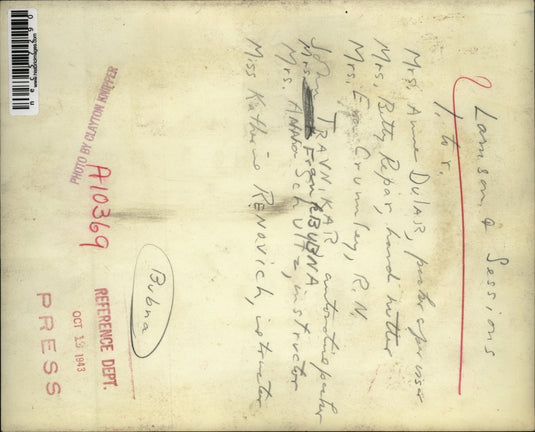 Lamson & Sessions
l. to r.
Mrs. Anne DULAR, packer operator
Mrs. Betty Repar, hand nutter
Mrs. Eva Crumley, R.N.
John TRAVNIKAR automatic packer
Mrs. Fran BUBNA
Mrs. ANNA Schultz, instructor
Miss Kathrine RENOVICH, instructor
Bubna
PHOTO BY CLAYTON KNIPPER
A10369
REFERENCE DEPT.
OCT 19 1943
PRESS